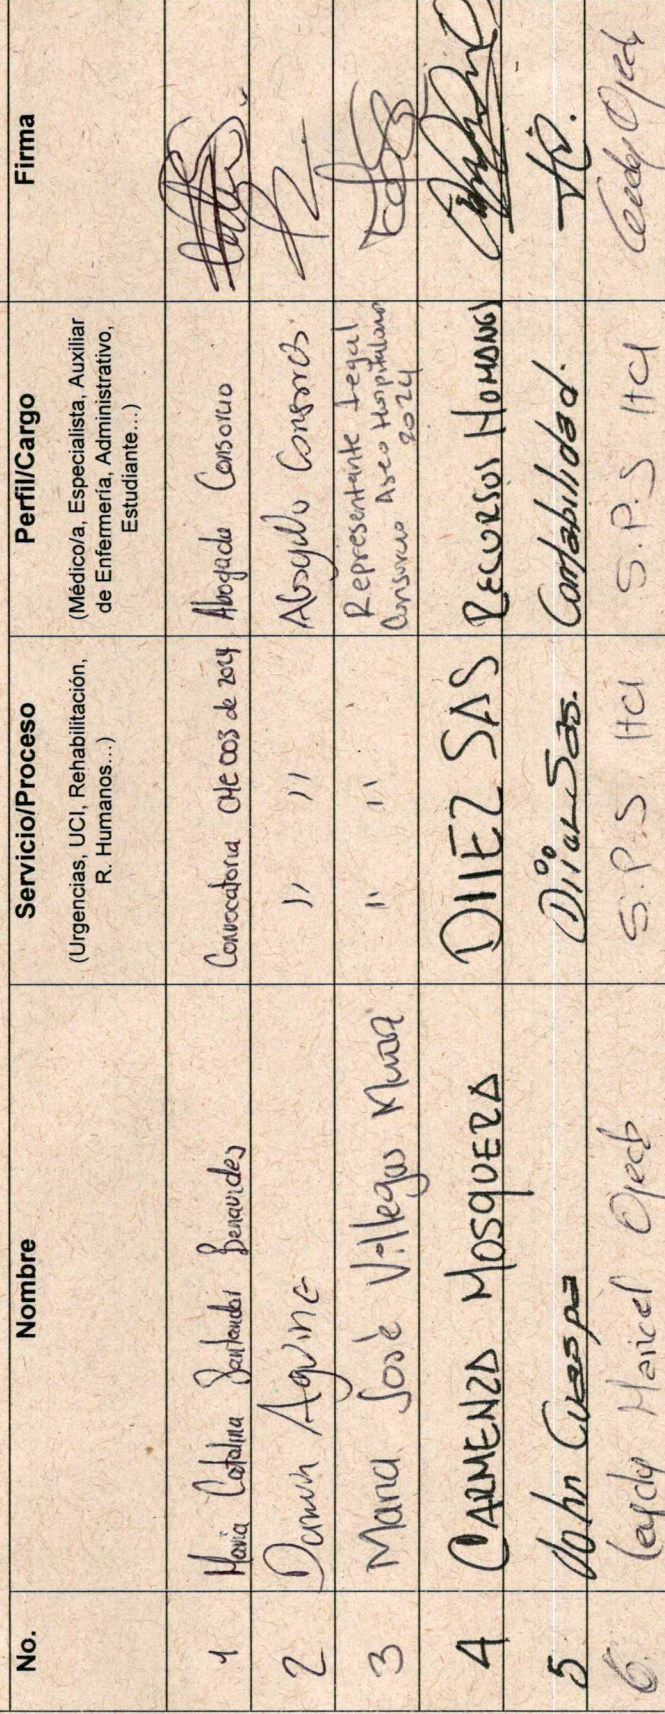 No. Nombre Servicio/Proceso Perfil/Cargo Firma
(Urgencias, UCI, Rehabilitación, R. Humanos...) (Médico/a, Especialista, Auxiliar de Enfermería, Administrativo, Estudiante...)
1 Maria Catalina Santander Benavides Convocatoria CME 003 de 2024 Abogada Consorcio
2 Aguirre " " Consorcio
3 Maria José Villegas " " Representante Legal
Consorcio Aseo Hospitalario
2024
4 CARMENZA MOSQUERA DIIEZ SAS RECURSOS HUMANOS
5 John Cuaspa Diiez Sas. Contabilidad.
6. Leydy Maricel Ojeda S.P.S HCI S.P.S HCI Leidy Ojeda